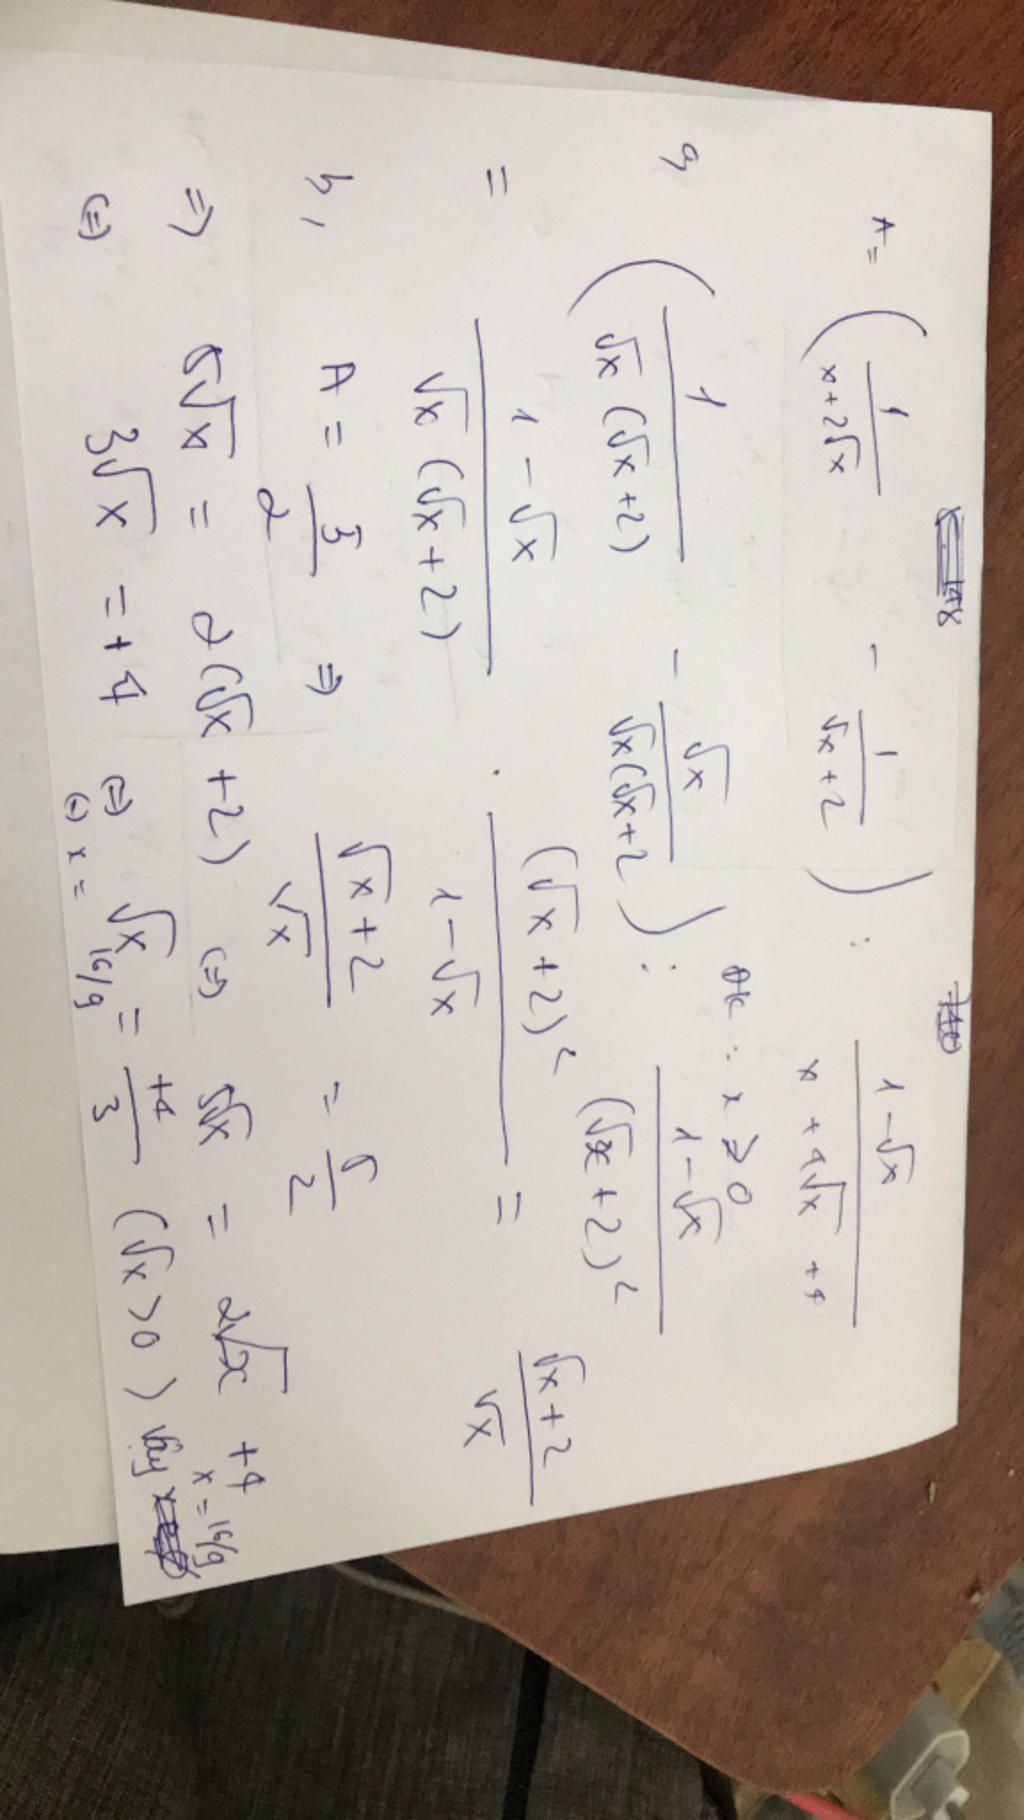 A = ( 1/(x+2√x) - 1/(√x+2) ) : (1-√x)/(x+4√x+4)
đk : x ≥ 0
a, ( 1/(√x(√x+2)) - √x/(√x(√x+2) ) : (1-√x)/(√x+2)²
= (1-√x)/(√x(√x+2)) . (√x+2)²/(1-√x) = (√x+2)/√x
b, A = 5/2 ⇒ (√x+2)/√x = 5/2
⇒ 5√x = 2(√x+2) (=) 5√x = 2√x +4
(=) 3√x = +4 (=) √x = +4/3 (√x >0) vậy x = 16/9
(=) x = 16/9